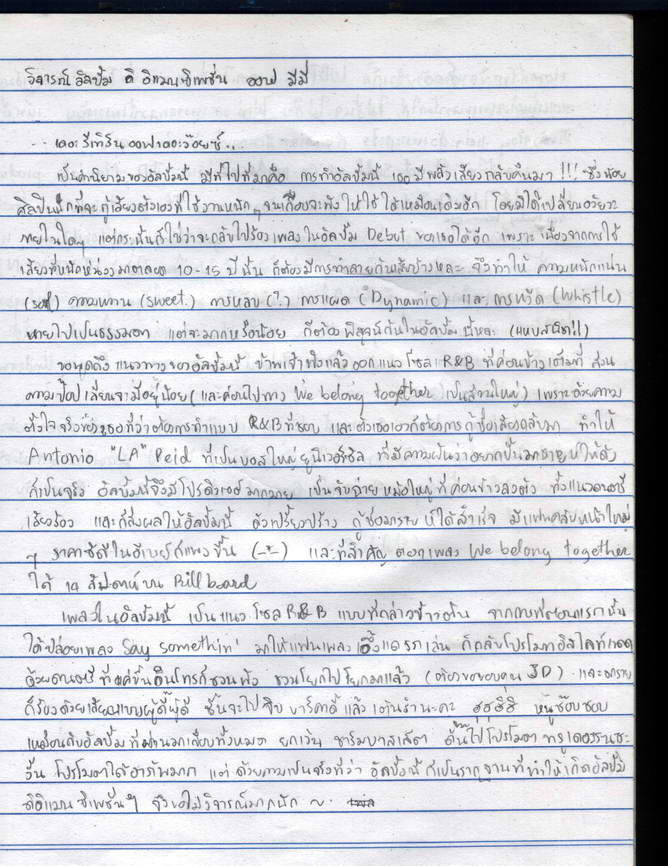 วิจารณ์ อัลบั้ม ดิ อิแมนซิเพชั่น ออฟ มีมี่
... เดอะ รีเทิร์น ออฟ เดอะ ว๊อยซ์..
เป็นคำนิยามของอัลบั้มนี้ มีที่ไปที่มาคือ การทำอัลบั้มนี้ 100 ปี พลังเสียงกลับคืนมา !!! ซึ่งน้อย
ศิลปินนักที่จะกู้เสียงตัวเองที่ใช้งานหนัก ๆ จนเกือบจะพัง ให้ใช้ได้เหมือนเดิมอีก โดยมิได้เปลี่ยนอวัยวะ
ภายในใดๆ แต่กระนั้นก็ใช่ว่าจะกลับไปร้องเพลงในอัลบั้ม Debut ของเธอได้อีก เพราะ เนื่องจากการใช้
เสียงที่หนักหน่วงมาตลอด 10-15 ปีนั้น ก็ต้องมีการทำลายกันเส้นบ้างหละ จึงทำให้ ความหนักแน่น
(soul) ความหวาน (sweet) การหลบ (?) การแผด (Dynamic) และ การหวีด (Whistle)
หายไปเป็นธรรมดา แต่จะมากหรือน้อย ก็ต้องพิสูจน์กันในอัลบั้มนี้หละ (แหบสนิท!!)
ขอพูดถึง แนวทางของอัลบั้มนี้ ข้าพเจ้าฟังแล้วออกแนว โซล R&B ที่ค่อนข้างเต็มที่ ส่วน
ความป๊อป เลี่ยนจะมีอยู่น้อย (และค่อนไปทาง We belong together เป็นส่วนใหญ่) เพราะด้วยความ
ตั้งใจจริงของเธอที่ว่าต้องการทำแบบ R&B ที่ชอบ และตัวเธอเองก็ต้องการกู้ชื่อเสียงกลับมา ทำให้
Antonio "LA" Reid ที่เป็นบอสใหญ่ยูนิเวอร์ซัล ที่มีความฝันว่าอยากปั้นมารายห์ให้ดัง
ก็เป็นจริง อัลบั้มนี้จึงมีโปรดิวเซอร์มากมาย เป็นจับฉ่ายหม้อใหญ่ที่ค่อนข้างลงตัว ทั้งแนวดนตรี
เสียงร้อง และก็ส่งผลให้อัลบั้มนี้ ดังเปรี้ยงปร้าง กู้ชื่อมารายห์ได้สำเร็จ มีแฟนคลับหน้าใหม่
ๆ ราคาซีดีในอีเบย์ก็แพงขึ้น (-*-) และที่สำคัญ ดอกเพลง We belong together
ได้ 14 สัปดาห์บน Billboard
เพลงในอัลบั้มนี้ เป็นแนว โซล R&B แบบที่กล่าวข้างต้น จากภาพที่ตอนแรกนั้น
ได้ปล่อยเพลง Say somethin' มาให้แฟนเพลงอึ้งและรำเล่น ก็กลับโปรโมท อิสไลค์แทต
ด้วยดนตรี ที่แค่ขึ้นอินโทรก็ชวนฟัง ชวนโยกไปโยกมาแล้ว (ต้องขอขอบคุณ JD) และมาราย
ก็ร้องด้วยเสียงแบบผู้ดี๊ผู้ดี ชั้นจะไปจิบ บาร์คาดี้ แล้วเต้นรำนะคะ ฮุฮุฮิฮิ หนูช๊อบชอบ
เหมือนกับอัลบั้มที่ผ่านมาเกือบทั้งหมด ยกเว้น ชาร์มบาสเล็ต ดั๊นไปโปรโมท ทรูเดอะเรนซะ
งั้น โปรโมตได้อาภัพมาก แต่ ด้วยความเป็นจริงที่ว่า อัลบั้มนี้ก็เป็นรากฐานที่ทำให้เกิดอัลบั้ม
ดิอิแมนซิเพชั่นฯ จึงขอไม่วิจารณ์มากนัก ~